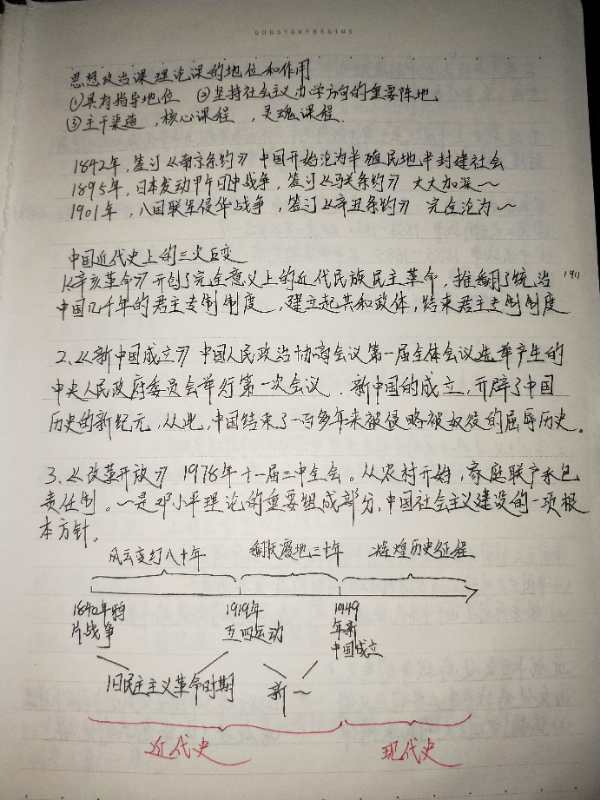 思想政治课理论课的地位和作用
①具有指导地位 ②坚持社会主义办学方向的重要阵地
③主干渠道，核心课程，灵魂课程.
1842年，签订《南京条约》 中国开始沦为半殖民地半封建社会
1895年，日本发动甲午日中战争，签订《马关条约》 大大加深~
1901年，八国联军侵华战争，签订《辛丑条约》 完全沦为~
中国近代史上的三次巨变
1.《辛亥革命》开创了完全意义上的近代民族民主革命，推翻了统治 1911
中国几千年的君主专制制度，建立起共和政体，结束君主专制制度
2.《新中国成立》中国人民政治协商会议第一届全体会议选举产生的
中央人民政府委员会举行第一次会议. 新中国的成立，开辟了中国
历史的新纪元，从此，中国结束了一百多年来被侵略被奴役的屈辱历史。
3.《改革开放》 1978年十一届三中全会。从农村开始，家庭联产承包
责任制。~是邓小平理论的重要组成部分，中国社会主义建设的一项根
本方针。
风云变幻八十年 翻天覆地三十年 辉煌历史征程
1840年鸦 1919年 1949
片战争 五四运动 年新
中国成立
旧民主主义革命时期 新~
近代史 现代史